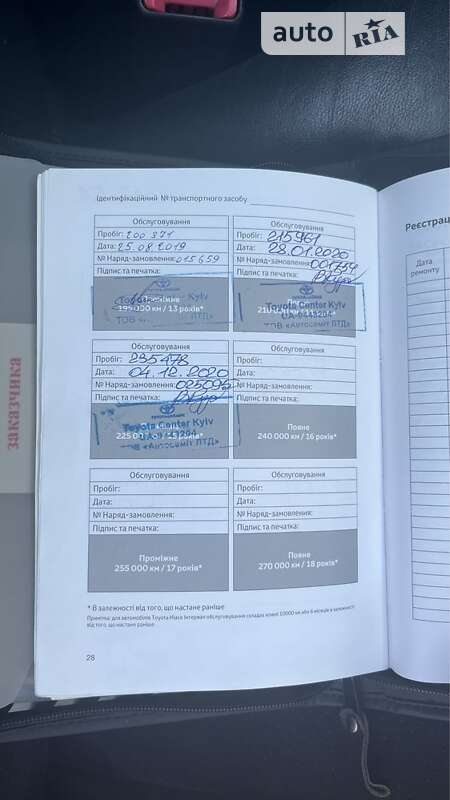 auto RIA
Ідентифікаційний № транспортного засобу
Обслуговування
Пробіг: 200 371
Дата: 25.08.2019
№ Наряд-замовлення: 015659
Підпис та печатка:
195 000 км / 13 років*
Обслуговування
Пробіг: 215961
Дата: 28.01.2020
№ Наряд-замовлення:
Підпис та печатка:
Toyota Center Kyiv
ТОВ «Автосаміт ЛТД»
Обслуговування
Пробіг: 235478
Дата: 04.12.2020
№ Наряд-замовлення:
Підпис та печатка:
Toyota Center Kyiv
«Автосаміт ЛТД»
Обслуговування
Пробіг:
Дата:
№ Наряд-замовлення:
Підпис та печатка:
Повне
240 000 км / 16 років*
Обслуговування
Пробіг:
Дата:
№ Наряд-замовлення:
Підпис та печатка:
Проміжне
255 000 км / 17 років*
Обслуговування
Пробіг:
Дата:
№ Наряд-замовлення:
Підпис та печатка:
Повне
270 000 км / 18 років*
* В залежності від того, що настане раніше
Примітка: для автомобілів Toyota Hiace інтервал обслуговування складає кожні 10000 км або 6 місяців в залежності
від того, що настане раніше
28
заказчика
Реєстрац
Дата
ремонту